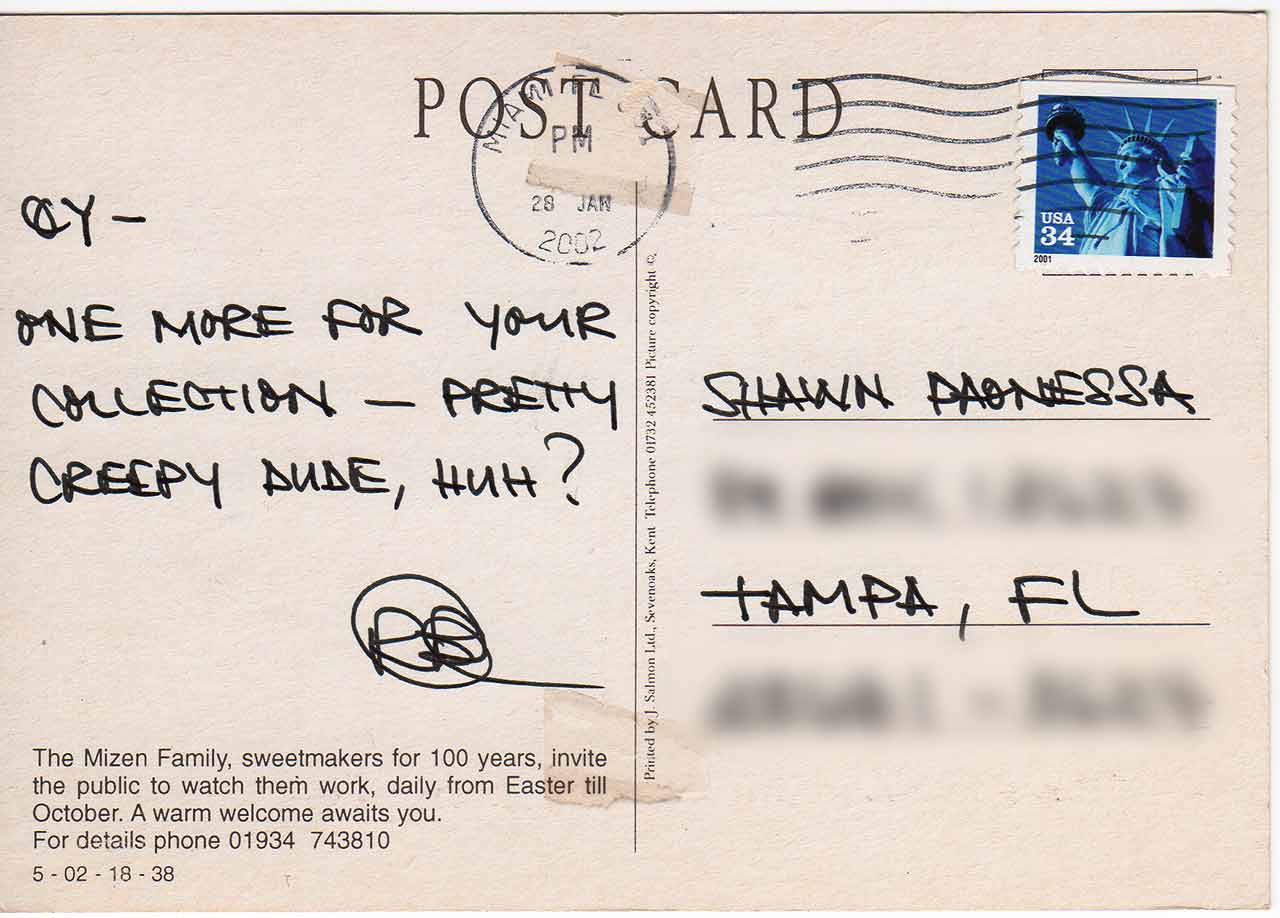 POST CARD
MIAMI FL
PM
28 JAN
2002
USA
34
2001
CY –
ONE MORE FOR YOUR
COLLECTION – PRETTY
CREEPY DUDE, HUH?
SHAWN PAONESSA
TAMPA, FL
The Mizen Family, sweetmakers for 100 years, invite
the public to watch them work, daily from Easter till
October. A warm welcome awaits you.
For details phone 01934 743810
5 - 02 - 18 - 38
Printed by J. Salmon Ltd., Sevenoaks, Kent Telephone 01732 452381 Picture copyright ©